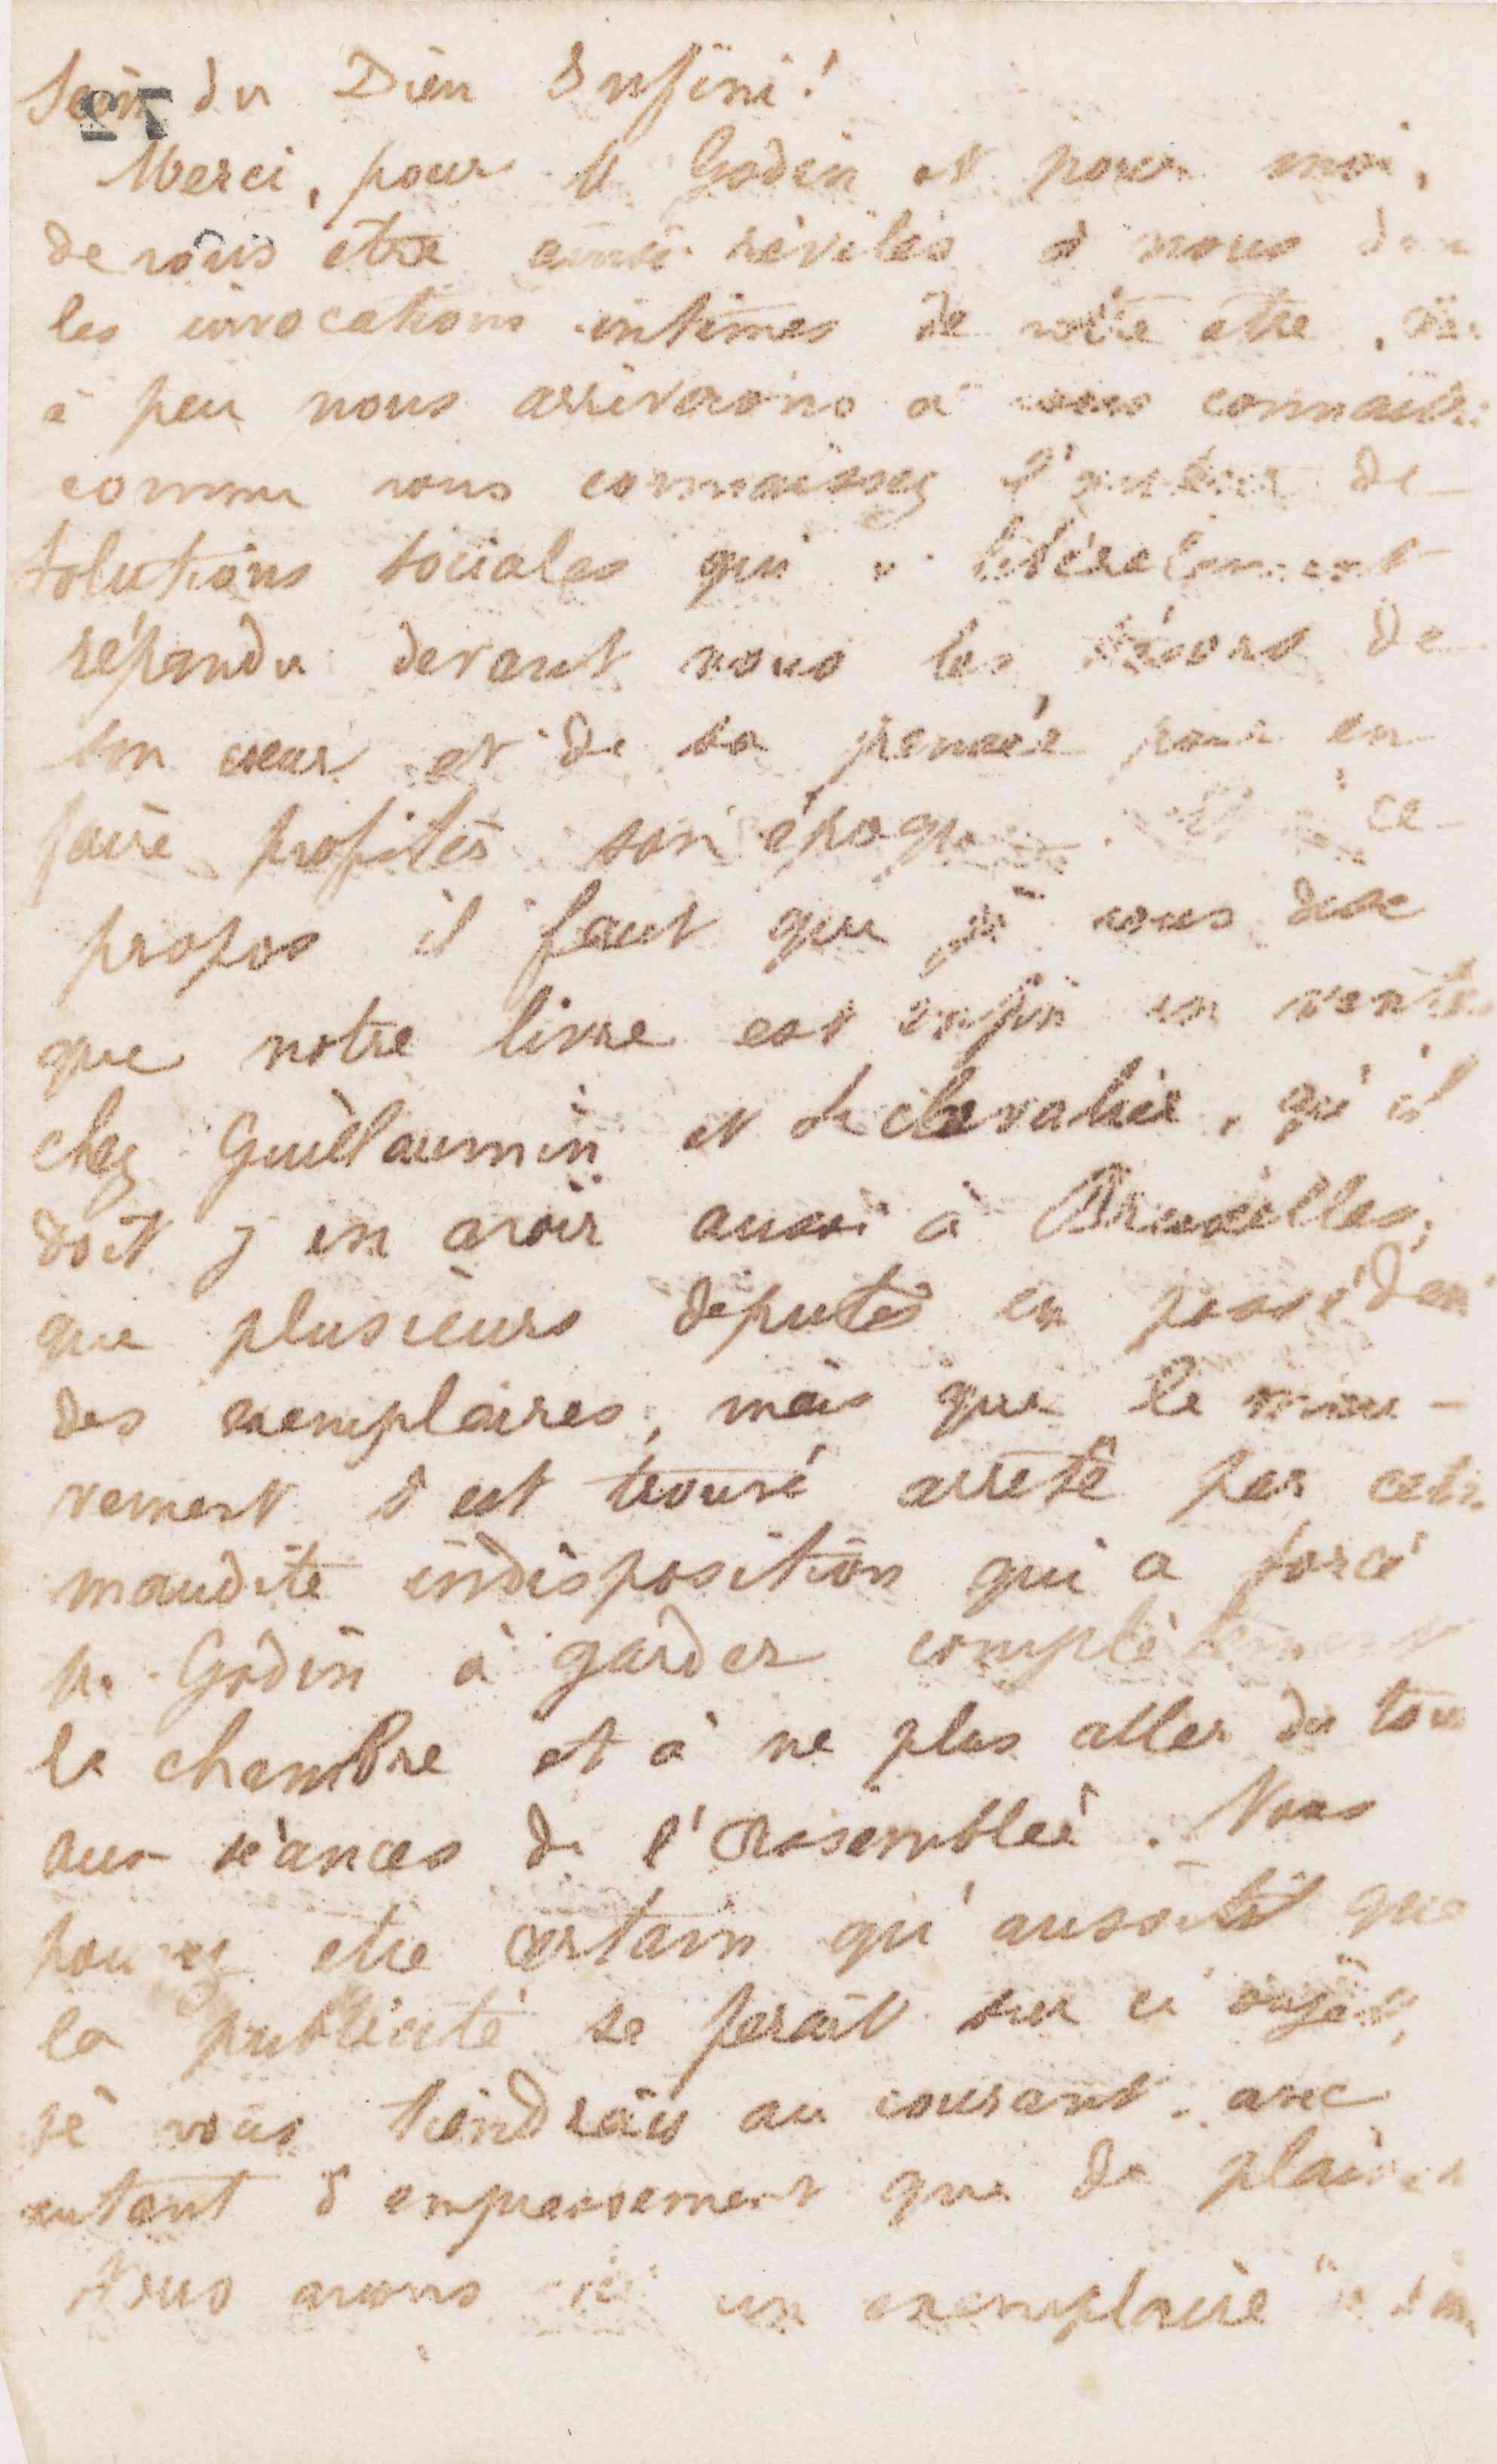 sein du Dieu Infini!
Merci, pour M Godin et pour moi,
de vous être ainsi révélés à nous dans
les invocations intimes de votre être.
à peu nous arriverons à vous connaître
comme vous connaissez l'auteur de
solutions sociales qui a littéralement
répandu devant vous les trésors de
son cœur et de sa pensée pour en
faire profiter son époque. Et à ce
propos il faut que je vous dise
que notre livre est enfin en vente
chez Guillaumin et Le Chevalier, qu'il
doit y en avoir aussi à Bruxelles,
que plusieurs députés en possèdent
des exemplaires, mais que le mou-
vement s'est trouvé arrêté par cette
maudite indisposition qui a forcé
M. Godin à garder complètement
la chambre et à ne plus aller du tout
aux séances de l'Assemblée. Vous
pouvez être certain qu'aussitôt que
la publicité se ferait sur ce sujet,
je vous tiendrais au courant avec
autant d'empressement que de plaisir
Nous avons ici un exemplaire